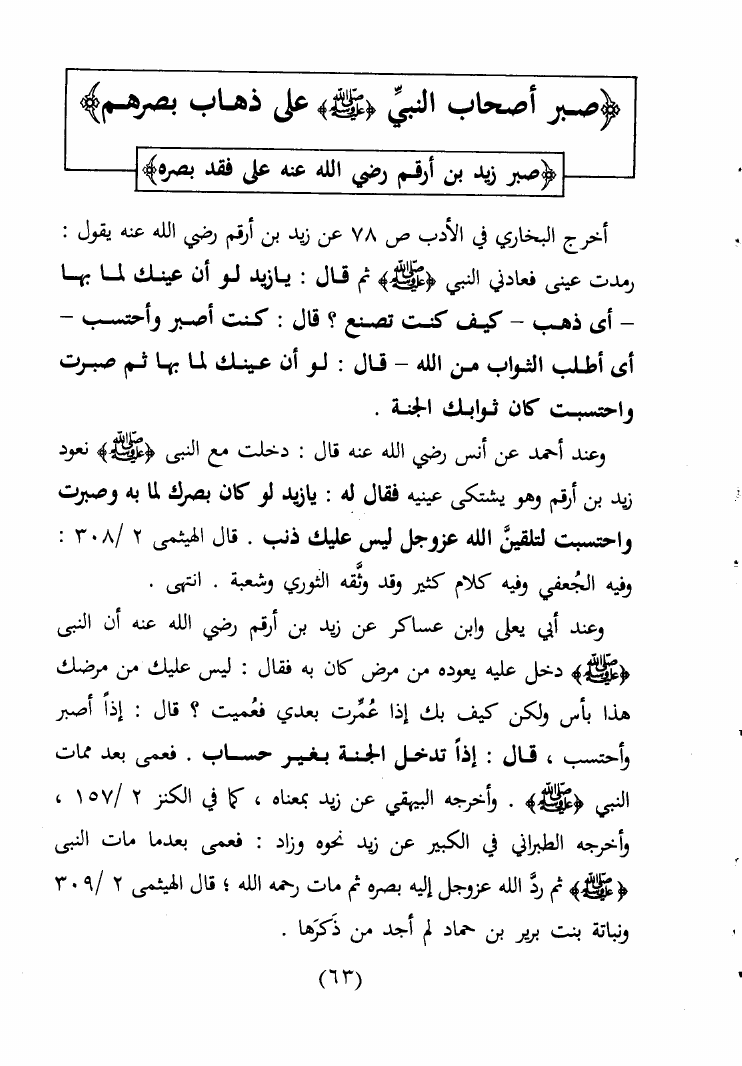 ﴿صبر أصحاب النبيِّ ﴿ﷺ﴾ على ذهاب بصرهم﴾
﴿صبر زيد بن أرقم رضي الله عنه على فقد بصره﴾
أخرج البخاري في الأدب ص ٧٨ عن زيد بن أرقم رضي الله عنه يقول :
رمدت عينى فعادني النبي ﴿ﷺ﴾ ثم قال : يازيد لو أن عينك لما بها
– أى ذهب – كيف كنت تصنع ؟ قال : كنت أصبر وأحتسب –
أى أطلب الثواب من الله – قال : لو أن عينك لما بها ثم صبرت
واحتسبت كان ثوابك الجنة .
وعند أحمد عن أنس رضي الله عنه قال : دخلت مع النبى ﴿ﷺ﴾ نعود
زيد بن أرقم وهو يشتكى عينيه فقال له : يازيد لو كان بصرك لما به وصبرت
واحتسبت لتلقينَّ الله عزوجل ليس عليك ذنب . قال الهيثمى ٢ /٣٠٨ :
وفيه الجُعفي وفيه كلام كثير وقد وثَّقه الثوري وشعبة . انتهى .
وعند أبي يعلى وابن عساكر عن زيد بن أرقم رضي الله عنه أن النبى
﴿ﷺ﴾ دخل عليه يعوده من مرض كان به فقال : ليس عليك من مرضك
هذا بأس ولكن كيف بك إذا عُمِّرت بعدي فعُميت ؟ قال : إذاً أصبر
وأحتسب ، قال : إذاً تدخل الجنة بغير حساب . فعمى بعد ممات
النبي ﴿ﷺ﴾ . وأخرجه البيهقي عن زيد بمعناه ، كما في الكنز ٢ /١٥٧ ،
وأخرجه الطبراني في الكبير عن زيد نحوه وزاد : فعمى بعدما مات النبى
﴿ﷺ﴾ ثم ردَّ الله عزوجل إليه بصره ثم مات رحمه الله ؛ قال الهيثمى ٢ /٣٠٩
ونباتة بنت برير بن حماد لم أجد من ذَكَرَها .
(٦٣)